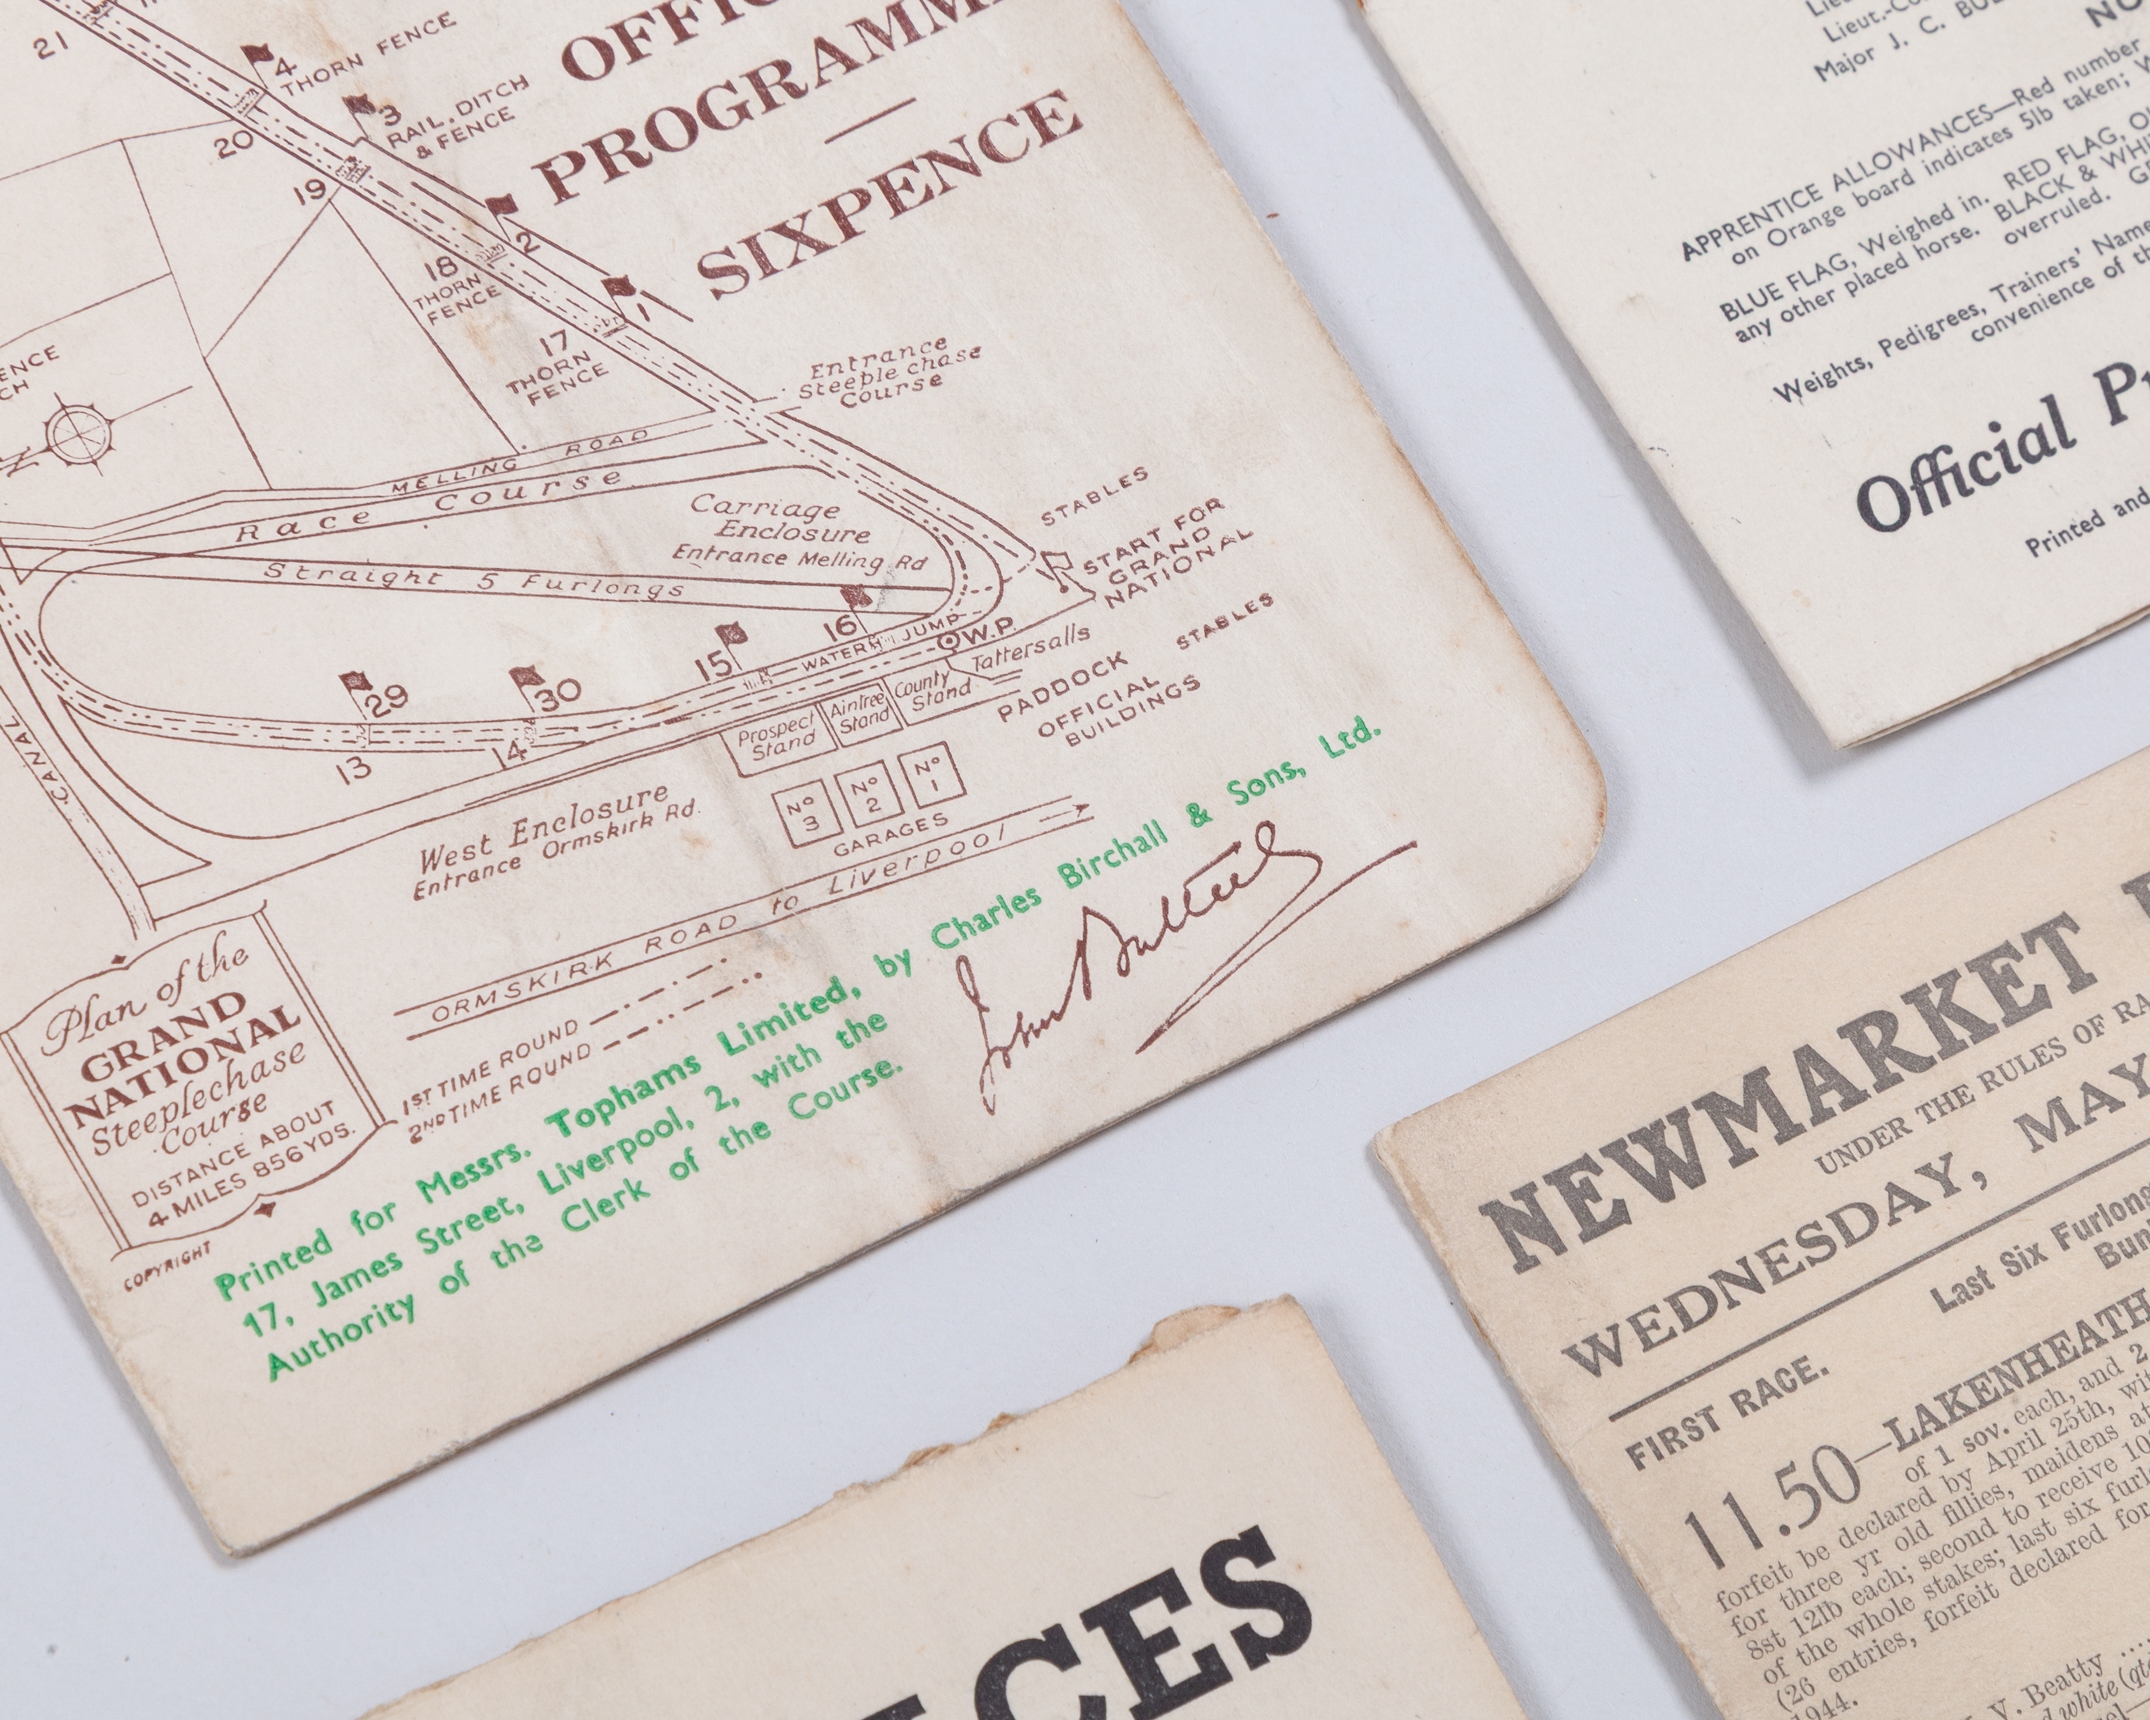 21
4
THORN FENCE
3
RAIL. DITCH
& FENCE
20
19
2
18
THORN
FENCE
1
17
THORN
FENCE
PROGRAMM
SIXPENCE
Entrance
Steeple chase
Course
MELLING ROAD
Race Course
Straight 5 Furlongs
Carriage
Enclosure
Entrance Melling Rd
STABLES
START FOR
GRAND
NATIONAL
STABLES
16
WATER JUMP
W.P.
15
29
30
13
14
Tattersalls
County
Stand
Aintree
Stand
Prospect
Stand
PADDOCK
OFFICIAL
BUILDINGS
No 3
No 2
No 1
GARAGES
CANAL
West Enclosure
Entrance Ormskirk Rd.
ORMSKIRK ROAD to Liverpool
1ST TIME ROUND
2ND TIME ROUND
Plan of the
GRAND
NATIONAL
Steeplechase
Course
DISTANCE ABOUT
4 MILES 856 YDS.
COPYRIGHT
Printed for Messrs. Tophams Limited, by Charles Birchall & Sons, Ltd.
17, James Street, Liverpool, 2, with the
Authority of the Clerk of the Course.
Major J. C.
APPRENTICE ALLOWANCES—Red number
on Orange board indicates 5lb taken;
BLUE FLAG, Weighed in. RED FLAG,
any other placed horse. BLACK &
overruled.
Weights, Pedigrees, Trainers' Name
convenience of
Official
Printed and
NEWMARKET
UNDER THE RULES OF
WEDNESDAY, MAY
FIRST RACE.
Last Six Furlong
11.50—LAKENHEATH
of 1 sov. each, and 2
forfeit be declared by April 25th,
for three yr old fillies, maidens at
8st 12lb each; second to receive
of the whole stakes; last six
(26 entries, forfeit declared for
1944.
V. Beatty
CES